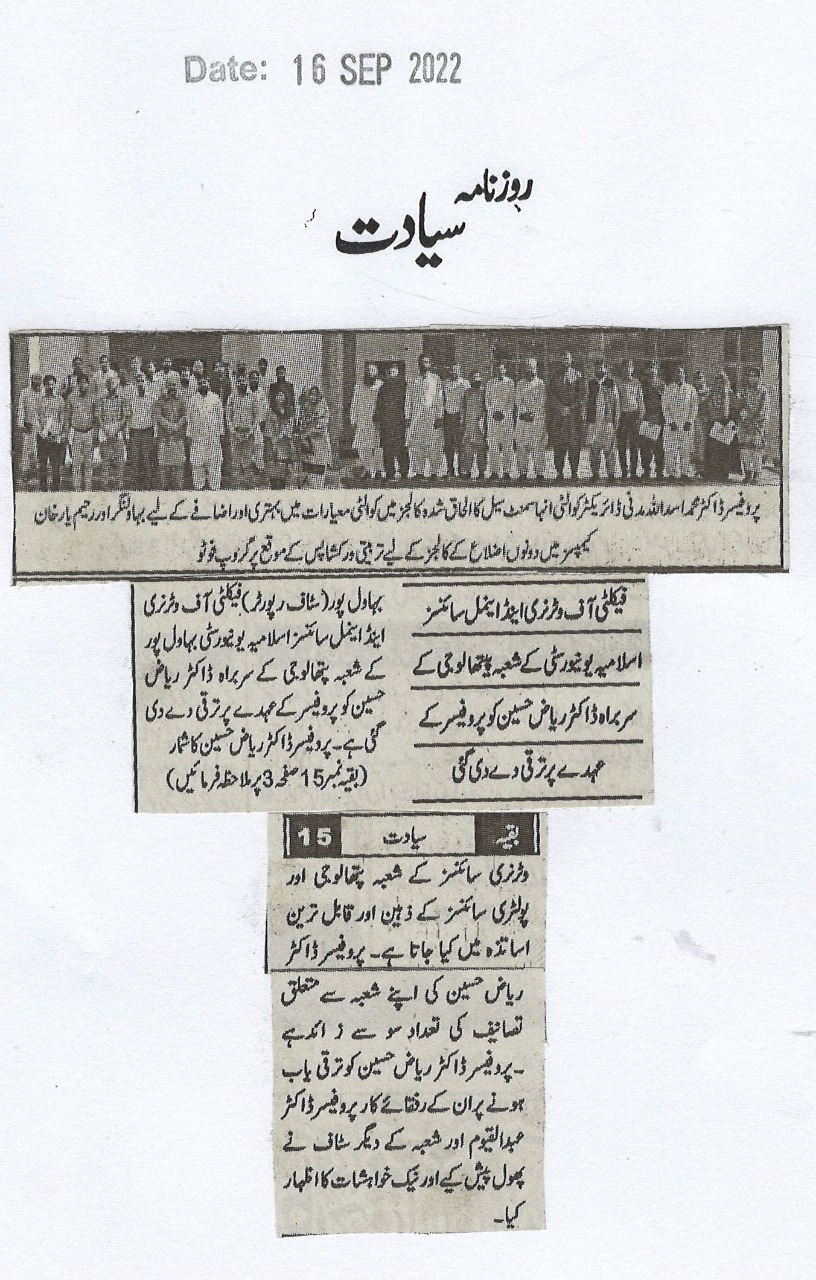 Date: 16 SEP 2022
روزنامہ
سیادت
پروفیسر ڈاکٹر محمد اسد اللہ مدنی ڈائریکٹر کوالٹی انہانسمنٹ سیل کا الحاق شدہ کالجز میں کوالٹی معیارات میں بہتری اور اضافے کے لیے بہاولنگر اور رحیم یار خان
کیمپسز میں دونوں اضلاع کے کالجز کے لیے تربیتی ورکشاپس کے موقع پر گروپ فوٹو
فیکلٹی آف وٹرنری اینڈ اینمل سائنسز
اسلامیہ یونیورسٹی کے شعبہ پیتھالوجی کے
سربراہ ڈاکٹر ریاض حسین کو پروفیسر کے
عہدے پر ترقی دے دی گئی
بہاول پور (سٹاف رپورٹر) فیکلٹی آف وٹرنری
اینڈ اینمل سائنسز اسلامیہ یونیورسٹی بہاول پور
کے شعبہ پتھالوجی کے سربراہ ڈاکٹر ریاض
حسین کو پروفیسر کے عہدے پر ترقی دے دی
گئی ہے۔ پروفیسر ڈاکٹر ریاض حسین کا شمار
(بقیہ نمبر 15 صفحہ 3 پر ملاحظہ فرمائیں)
بقیہ سیادت 15
وٹرنری سائنسز کے شعبہ پتھالوجی اور
پولٹری سائنسز کے ذہین اور قابل ترین
اساتذہ میں کیا جاتا ہے۔ پروفیسر ڈاکٹر
ریاض حسین کی اپنے شعبہ سے متعلق
تصانیف کی تعداد سو سے زائد ہے
۔ پروفیسر ڈاکٹر ریاض حسین کو ترقی یاب
ہونے پر ان کے رفقائے کار پروفیسر ڈاکٹر
عبدالقیوم اور شعبہ کے دیگر سٹاف نے
پھول پیش کیے اور نیک خواہشات کا اظہار
کیا۔